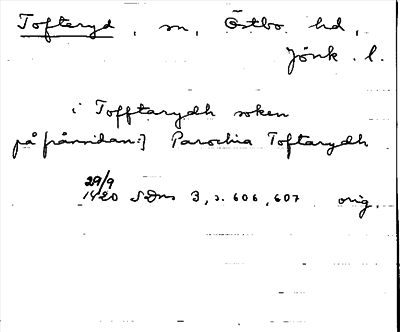 Tofteryd, sn, Östbo hd,
Jönk. l.
i Tofftarydh soken
på frånsidan:] Parochia Toftarydh
29/9
1420 SDns 3, s. 606, 607 orig.